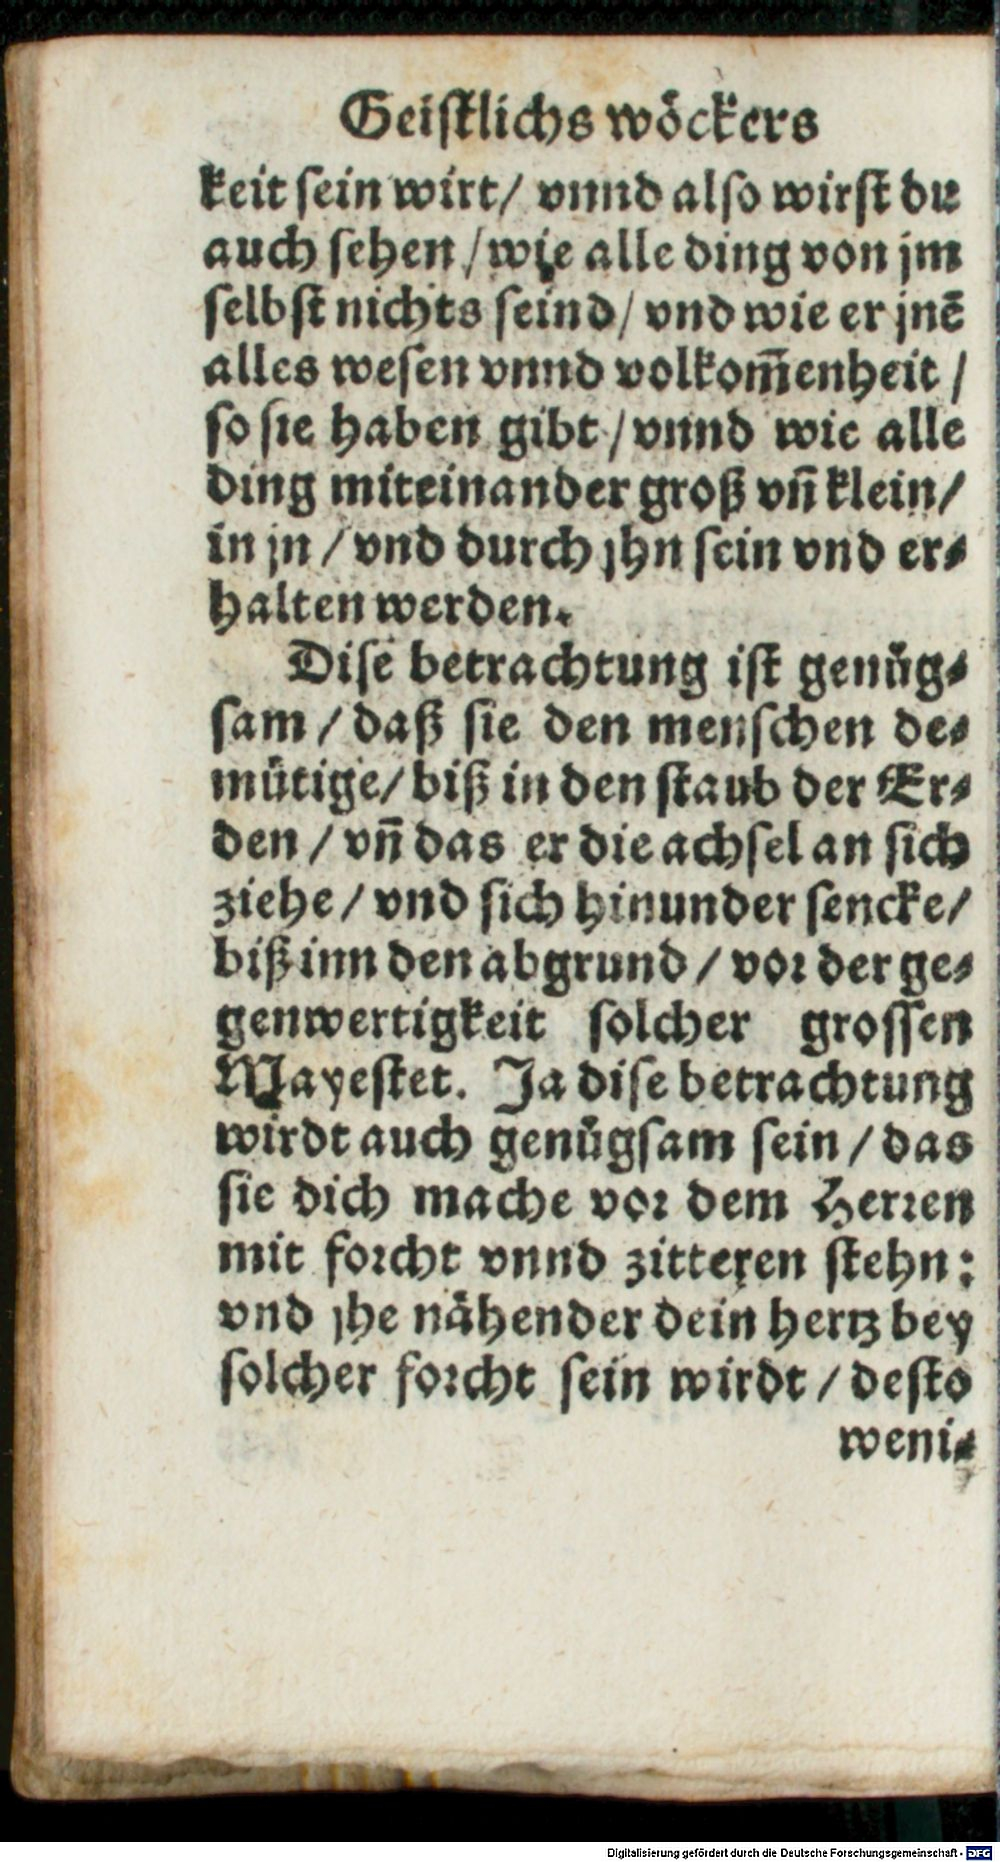 Geistlichs wöckers
keit sein wirt/ vnnd also wirst du
auch sehen/ wie alle ding von jm
selbst nichts seind/ vnd wie er jnē
alles wesen vnnd volkom̃enheit/
so sie haben gibt/ vnnd wie alle
ding miteinander groß vñ klein/
in jn/ vnd durch jhn sein vnd er-
halten werden.
Dise betrachtung ist genüg-
sam/ daß sie den menschen de-
mütige/ biß in den staub der Er-
den/ vñ das er die achsel an sich
ziehe/ vnd sich hinunder sencke/
biß inn den abgrund/ vor der ge-
genwertigkeit solcher grossen
Mayestet. Ja dise betrachtung
wirdt auch genügsam sein/ das
sie dich mache vor dem Herren
mit forcht vnnd zitteren stehn:
vnd jhe nähender dein hertz bey
solcher forcht sein wirdt/ desto
weni-
Digitalisierung gefördert durch die Deutsche Forschungsgemeinschaft - DFG